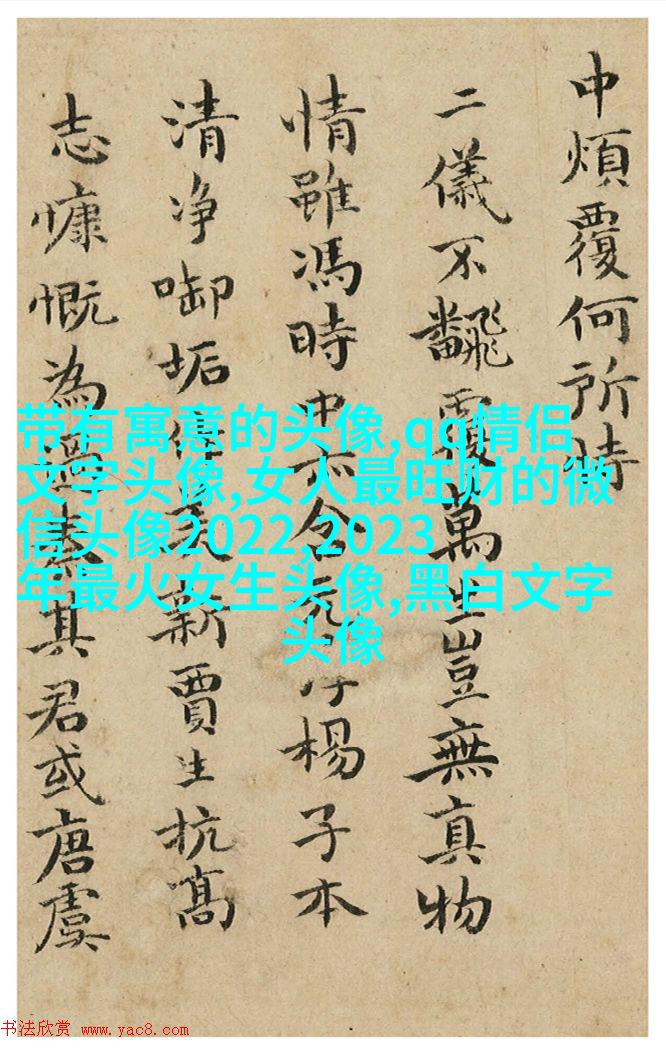 中煩覆何所恃
二儀不飜覆萬生豈無真物
情雖馮時中亦含楊子本
清净啣垢新賈生抗高
志慷慨為其君或唐虞
带有寓意的头像,qq情侣
文字头像,女人最旺财的微
信头像2022,2023
年最火女生头像,黑白文字
头像
书法欣赏 www.yac8.com